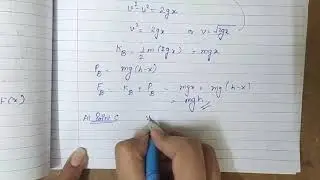 v² - u² = 2gx
v² = 2gx or v = √2gx
K_B = 1/2 m(2gx) = mgx
P_B = mg(h-x)
E_B = K_B + P_B = mgx + mg(h-x)
= mgh
At Point C